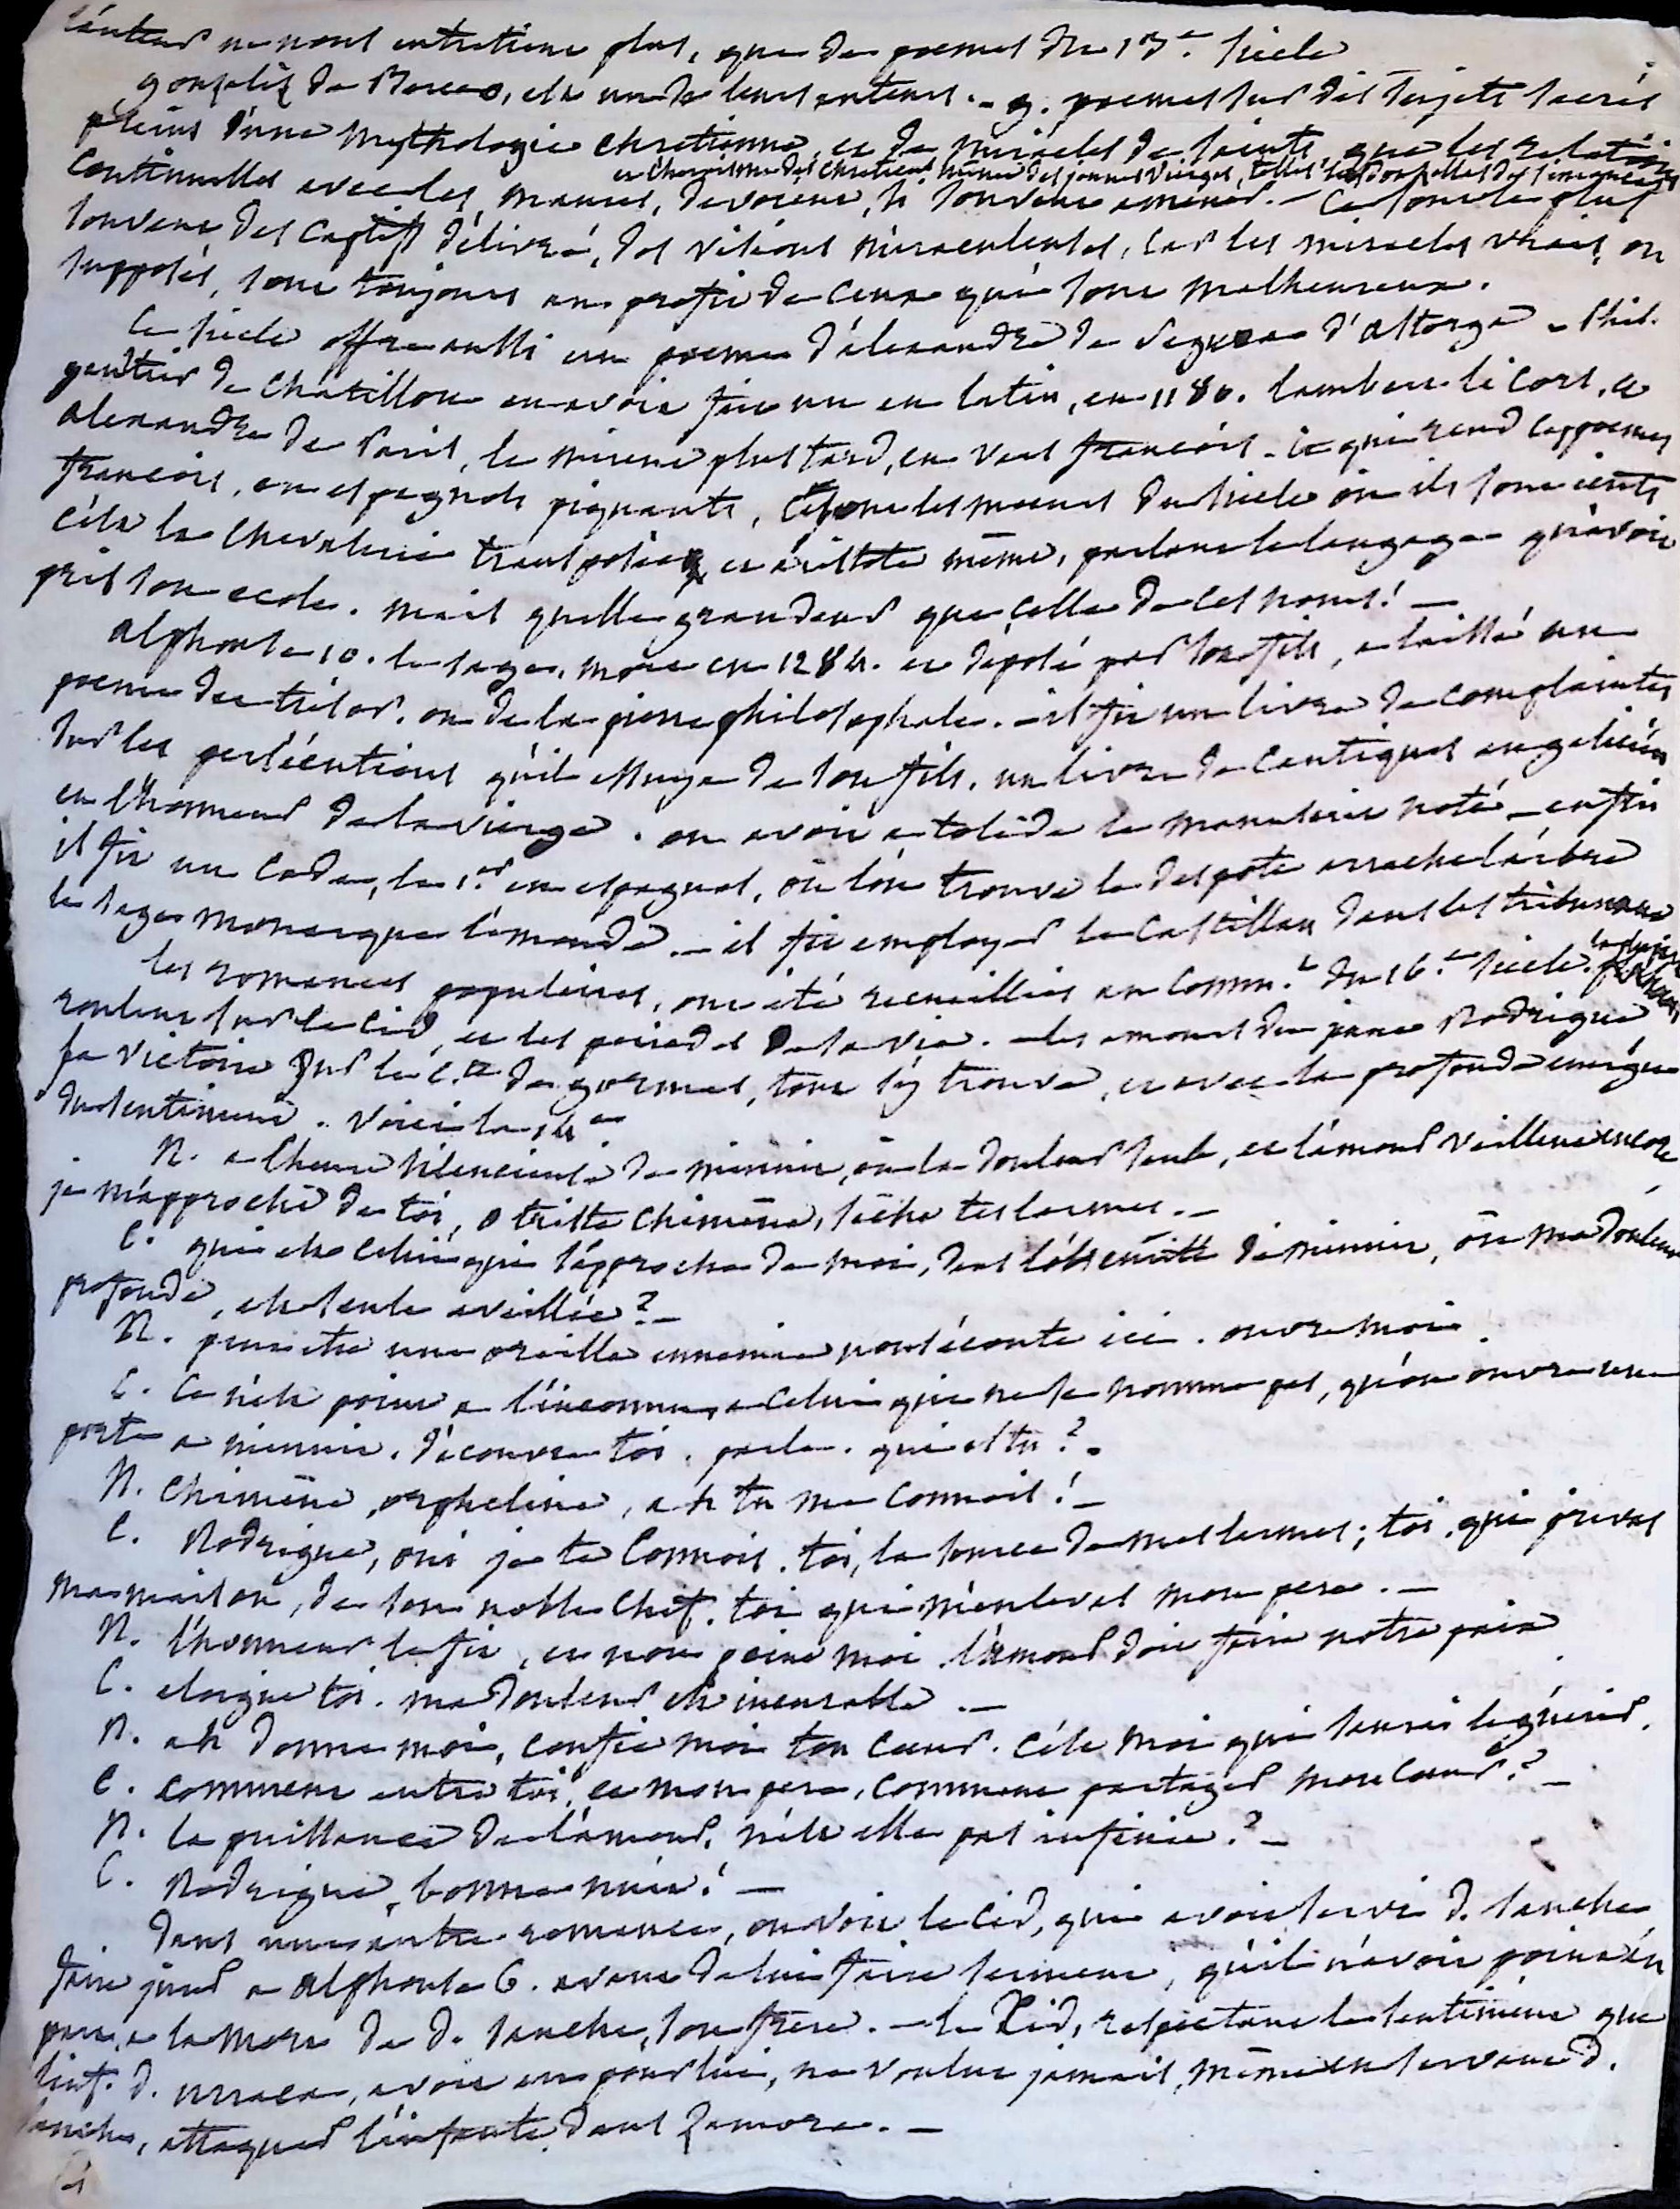 l'auteur ne nous entretient plus, que des poemes du 13.e siecle
gonzalez de Berceo, est un de leurs auteurs. _ 9. poemes sur des sujets sacrés
pleins d'une mythologie chretienne, et de miracles de saints, que les relations
et l'heroisme des chretiens, même des jeunes vierges, telles les
continuelles avec les maures, devoient, si souvent amener. _ ce sont le plus
souvent des captifs délivrés, des visions miraculeuses, car les miracles vrais, ou
supposés, sont toujours au profit de ceux qui sont malheureux.
Ce siecle offre aussi un poeme d'alexandre de Segura d'astorga _ Phil.
gautier de Chatillon en avoit fait un en latin, en 1180. lambert li Cors, et
alexandre de Paris, le mirent plus tard, en vers françois _ ce qui rend ces poemes
françois, ou espagnols piquants, ce sont les moeurs du siecle où ils sont écrits
c'est la chevalerie transposée, et aristote même, parlant le langage qu'avoit
pris son ecole. mais quelle grandeur que celle de ces noms! _
alphonse 10. le sage, mort en 1284. et déposé par son fils, a laissé un
poeme du trésor, ou de la pierre philosophale. _ il fit un livre de complaintes
sur les persécutions qu'il essuya de son fils, un livre de cantiques en galicien
en l'honneur de la vierge. on avoit a tolede le manuscrit noté _ enfin
il fit un code, le 1.er en espagnol, où l'on trouve le despote arrache l'arbre
le sage monarque l'émonde. _ il fit employer le castillan dans les tribunaux
les romances populaires, ont été recueillies au comm.t du 16.e siecle.
roulent sur le cid, et les periodes de sa vie. _ les amours du jeune Rodrigue
sa victoire sur le c.te de gormas, tout s'y trouve, et avec la profonde energie
du sentiment. voici la 14.e
R. a l'heure silencieuse de minuit, où la douleur seule, et l'amour veillent encore
je m'approche de toi, o triste chimène, sèche tes larmes. _
C. qui est celui qui s'approche de moi, dans l'obscurité de minuit, où ma douleur
profonde, est seule eveillée? _
R. peut etre une oreille ennemie nous écoute ici. ouvre moi
C. ce n'est point a l'inconnu, a celui qui ne se nomme pas, qu'on ouvre une
porte a minuit. découvre toi. parle. qui es tu? _
R. Chimène, orpheline, ah tu me connois! _
C. Rodrigue, oui je te connois. toi, la source de mes larmes; toi, qui privas
ma maison, de son noble chef. toi qui m'enlevas mon pere. _
R. l'honneur le fit, et non point moi. l'amour doit faire notre paix
C. eloigne toi. ma douleur est incurable. _
R. ah donne moi, confie moi ton coeur. c'est moi qui saurai le guérir.
C. comment entre toi, et mon pere, comment partager mon coeur? _
R. la puissance de l'amour, n'est elle pas infinie? _
C. Rodrigue, bonne nuit! _
Dans une autre romance, on voit le cid, qui avoit servi d. sanche
faire jurer a alphonse 6. avant de lui faire serment, qu'il n'avoit point eu
part, a la mort de d. sanche, son frere. _ le Cid, respectant le sentiment que
l'inf. d. urraca, avoit eu pour lui, ne voulut jamais, même en servant d.
sanche, attaquer l'infante, dans Zamora. _